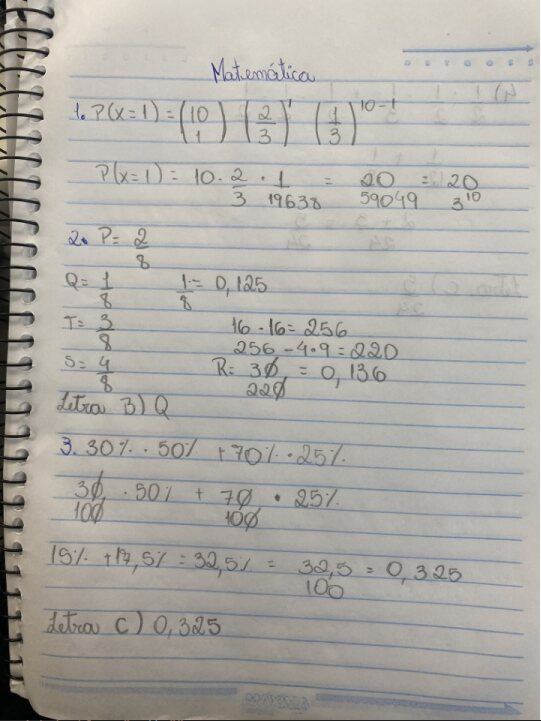 Matemática
1. P(x=1) = (10 1) (2/3)^1 (1/3)^10-1
P(x=1) = 10 · 2/3 · 1/19638 = 20/59049 = 20/3^10
2. P= 2/8
Q= 1/8    1/8 = 0,125
T= 3/8    16 · 16 = 256
256 - 4·9 = 220
S= 4/8    R= 30/220 = 0,136
Letra B) Q
3. 30% · 50% + 70% · 25%
30/100 · 50% + 70/100 · 25%
15% + 17,5% = 32,5% = 32,5/100 = 0,325
Letra C) 0,325